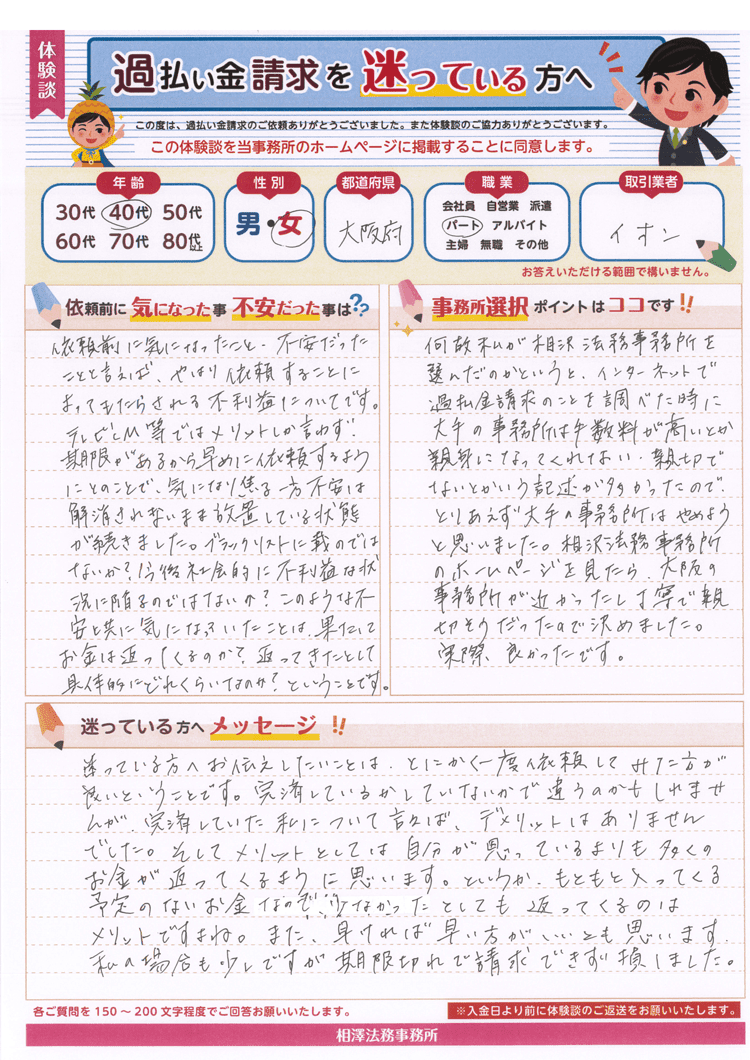 体験談
過払い金請求を迷っている方へ
この度は、過払い金請求のご依頼ありがとうございました。また体験談のご協力ありがとうございます。
この体験談を当事務所のホームページに掲載することに同意します。
年齢
30代 40代 50代
60代 70代 80代以上
性別
男・女
都道府県
大阪府
職業
会社員 自営業 派遣
パート アルバイト
主婦 無職 その他
取引業者
イオン
お答えいただける範囲で構いません。
依頼前に気になった事 不安だった事は??
依頼前に気になったこと・不安だった
ことと言えば、やはり依頼することに
よってもたらされる不利益についてです。
テレビCM等ではメリットしか言わず、
期限があるから早めに依頼するよう
にとのことで、気になり焦る一方不安は
解消されないまま放置している状態
が続きました。ブラックリストに載のでは
ないか?今後社会的に不利益な状
況に陥るのではないか?このような不
安と共に気になっていたことは、果たして
お金は返ってくるのか?返ってきたとして
具体的にどれくらいなのか?ということです。
事務所選択ポイントはココです!!
何故私が相沢法務事務所を
選んだのかというと、インターネットで
過払金請求のことを調べた時に
大手の事務所は手数料が高いとか
親身になってくれない・親切で
ないとかいう記述が多かったので、
とりあえず大手の事務所はやめよう
と思いました。相沢法務事務所
のホームページを見たら、大阪の
事務所が近かったし丁寧で親
切そうだったので決めました。
実際、良かったです。
迷っている方へメッセージ!!
迷っている方へお伝えしたいことは、とにかく一度依頼してみた方が
良いということです。完済しているかしていないかで違うのかもしれませ
んが、完済していた私について言えば、デメリットはありません
でした。そしてメリットとしては自分が思っているよりも多くの
お金が返ってくるように思います。というか、もともと入ってくる
予定のないお金なので、少なかったとしても返ってくるのは
メリットですよね。また、早ければ早い方がいいとも思います。
私の場合も少しですが期限切れで請求できず損しました。
各ご質問を150～200文字程度でご回答お願いいたします。
※入金日より前に体験談のご返送をお願いいたします。
相澤法務事務所